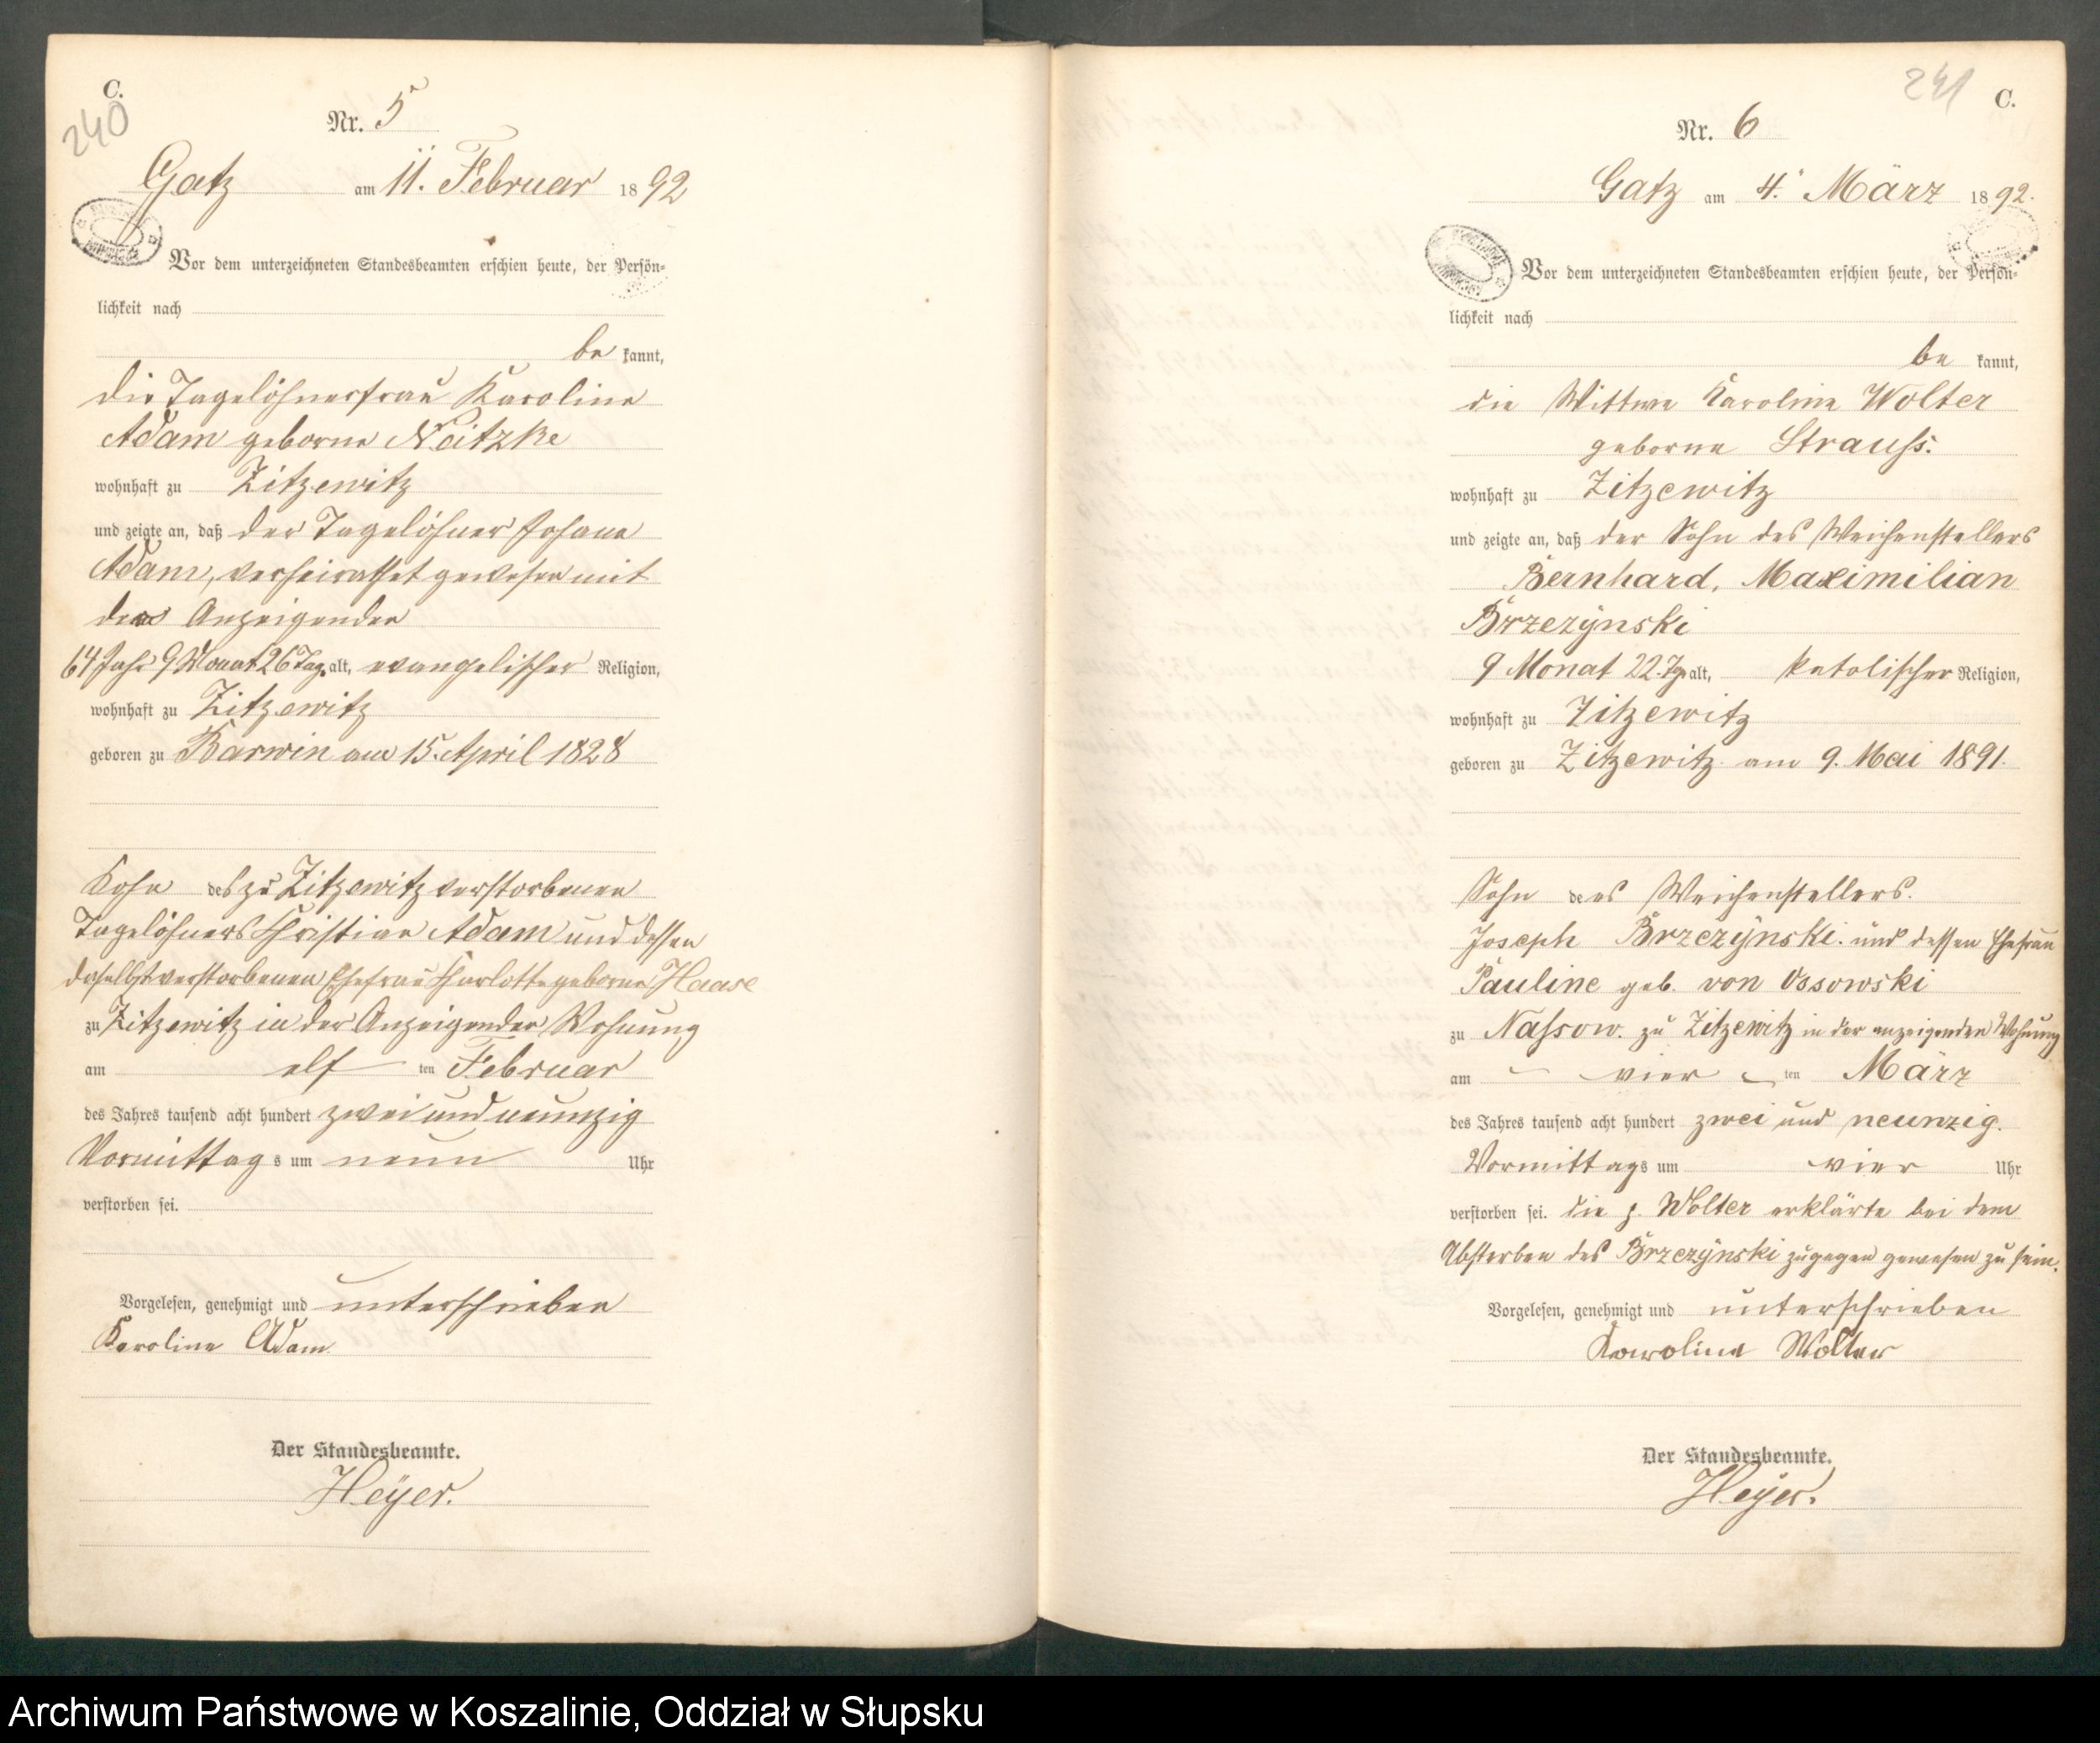 C.
240
Nr. 5
Gatz am 11. Februar 1892
Vor dem unterzeichneten Standesbeamten erschien heute, der Persön=
lichkeit nach
be kannt,
die Tagelöhnerfrau Karoline
Adam geborne Neitzke
wohnhaft zu Zitzewitz
und zeigte an, daß der Tagelöhner Johann
Adam, verheirathet gewesen mit
der Anzeigenden
64 Jahr 9 Monat 26 Tag. alt, evangelischer Religion,
wohnhaft zu Zitzewitz
geboren zu Barwin am 15. April 1828
Sohn des zu Zitzewitz verstorbenen
Tagelöhners Christian Adam und dessen
daselbst verstorbenen Ehefrau Charlotte geborne Haase
zu Zitzewitz in der Anzeigenden Wohnung
am elf ten Februar
des Jahres tausend acht hundert zwei und neunzig
Vormittags um neun Uhr
verstorben sei.
Vorgelesen, genehmigt und unterschrieben
Karoline Adam
Der Standesbeamte.
Heyer.
241 C.
Nr. 6
Gatz am 4. März 1892.
Vor dem unterzeichneten Standesbeamten erschien heute, der Persön=
lichkeit nach
be kannt,
die Wittwe Karoline Wolter
geborne Strauss.
wohnhaft zu Zitzewitz
und zeigte an, daß der Sohn des Weichenstellers
Bernhard, Maximilian
Brzezynski
9 Monat 22. Tg. alt, katolischer Religion,
wohnhaft zu Zitzewitz
geboren zu Zitzewitz am 9. Mai 1891.
Sohn des Weichenstellers.
Joseph Brzezynski. und dessen Ehefrau
Pauline geb. von Ossowski
zu Nassow. zu Zitzewitz in der anzeigenden Wohnung
am vier ten März
des Jahres tausend acht hundert zwei und neunzig.
Vormittags um vier Uhr
verstorben sei. die p. Wolter erklärte bei dem
Absterben des Brzezynski zugegen gewesen zu sein.
Vorgelesen, genehmigt und unterschrieben
Karoline Wolter
Der Standesbeamte.
Heyer.
Archiwum Państwowe w Koszalinie, Oddział w Słupsku